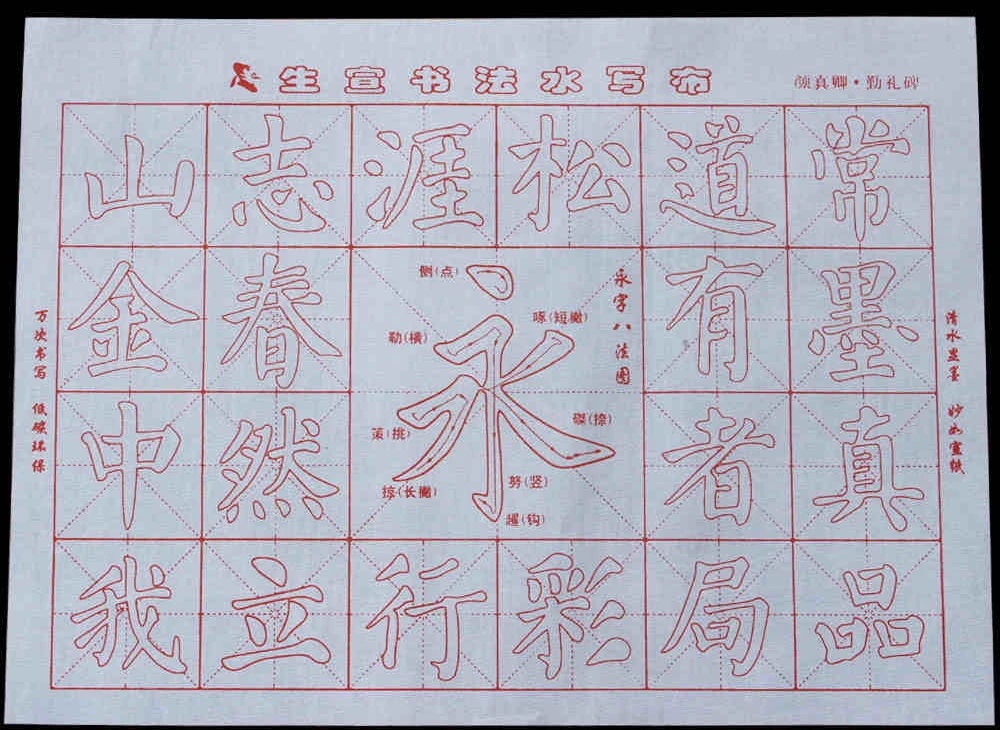 生宣书法水写布
颜真卿·勤礼碑
山志涯松道常
金春有墨
中然者真
我立行彩局品
永
永字八法图
侧(点)
啄(短撇)
勒(横)
磔(捺)
策(挑)
掠(长撇)
努(竖)
趯(钩)
万次书写 低碳环保
清水显墨 妙如宣纸